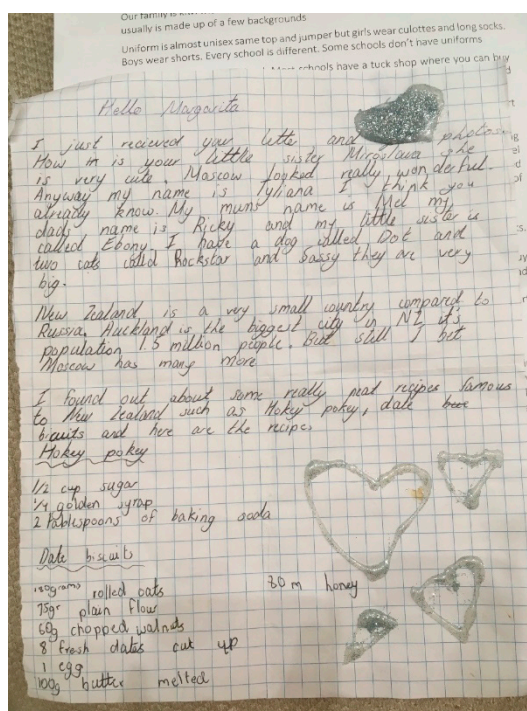 Our family is
usually is made up of a few backgrounds
Uniform is almost unisex same top and jumper but girls wear culottes and long socks.
Boys wear shorts. Every school is different. Some schools don't have uniforms
schools have a tuck shop where you can buy
Hello Margarita
I just recieved your lette and photos.
How in is your little sister Miroslava she
is very cute. Moscow looked really wonderful.
Anyway my name is Tyliana I think you
already know. My mums name is Mel my
dads name is Ricky and my little sister is
called Ebony. I have a dog called Dot and
two cats called Rockstar and Sassy they are very
big.
New Zealand is a very small country compared to
Russia. Auckland is the biggest city in NZ it's
population 1.5 million people. But still I bet
Moscow has many more
I found out about some really neat recipes famous
to New Zealand such as Hokey pokey, date
biscuits and here are the recipes
Hokey pokey
1/2 cup sugar
1/4 golden syrap
2 tablespoons of baking soda
Date biscuits
rolled oats 80 m honey
75gr plain flour
60g chopped walnuts
8 fresh dates cut up
1 egg
100g butter melted